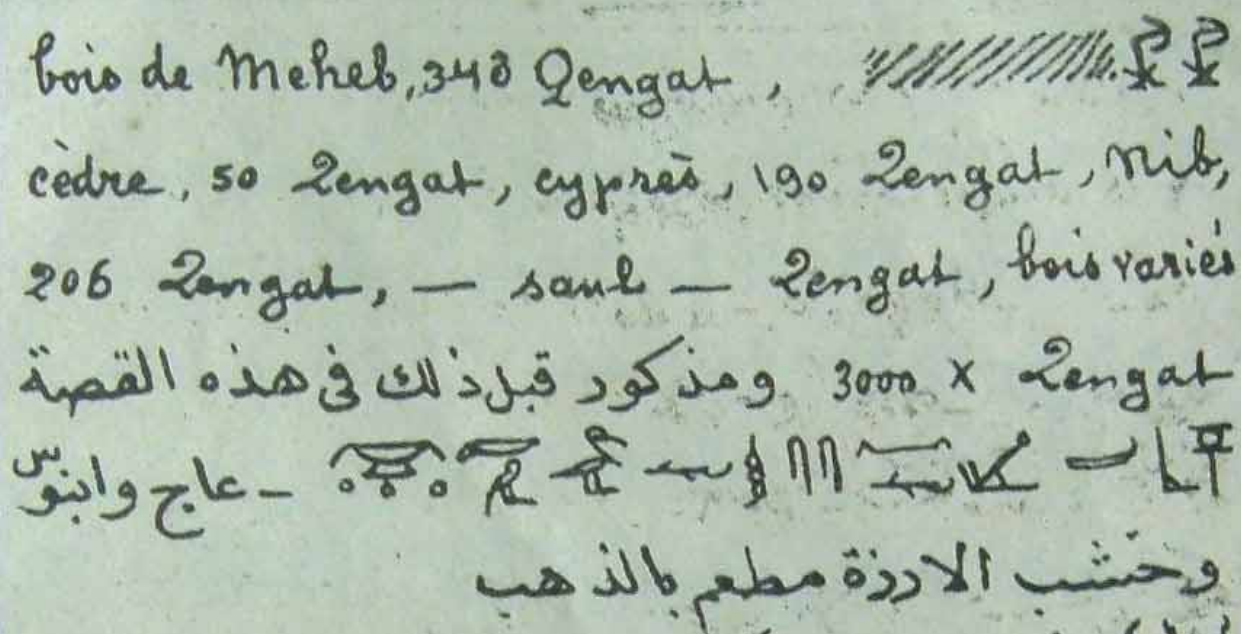 bois de Meheb, 348 Qengat,
cèdre, 50 Qengat, cyprès, 190 Qengat, Nib,
206 Qengat, — sank — Qengat, bois variés
3000 x Qengat ومذكور قبل ذلك فى هذه القصة
- عاج وابنوس
وخشب الارزة مطعم بالذهب